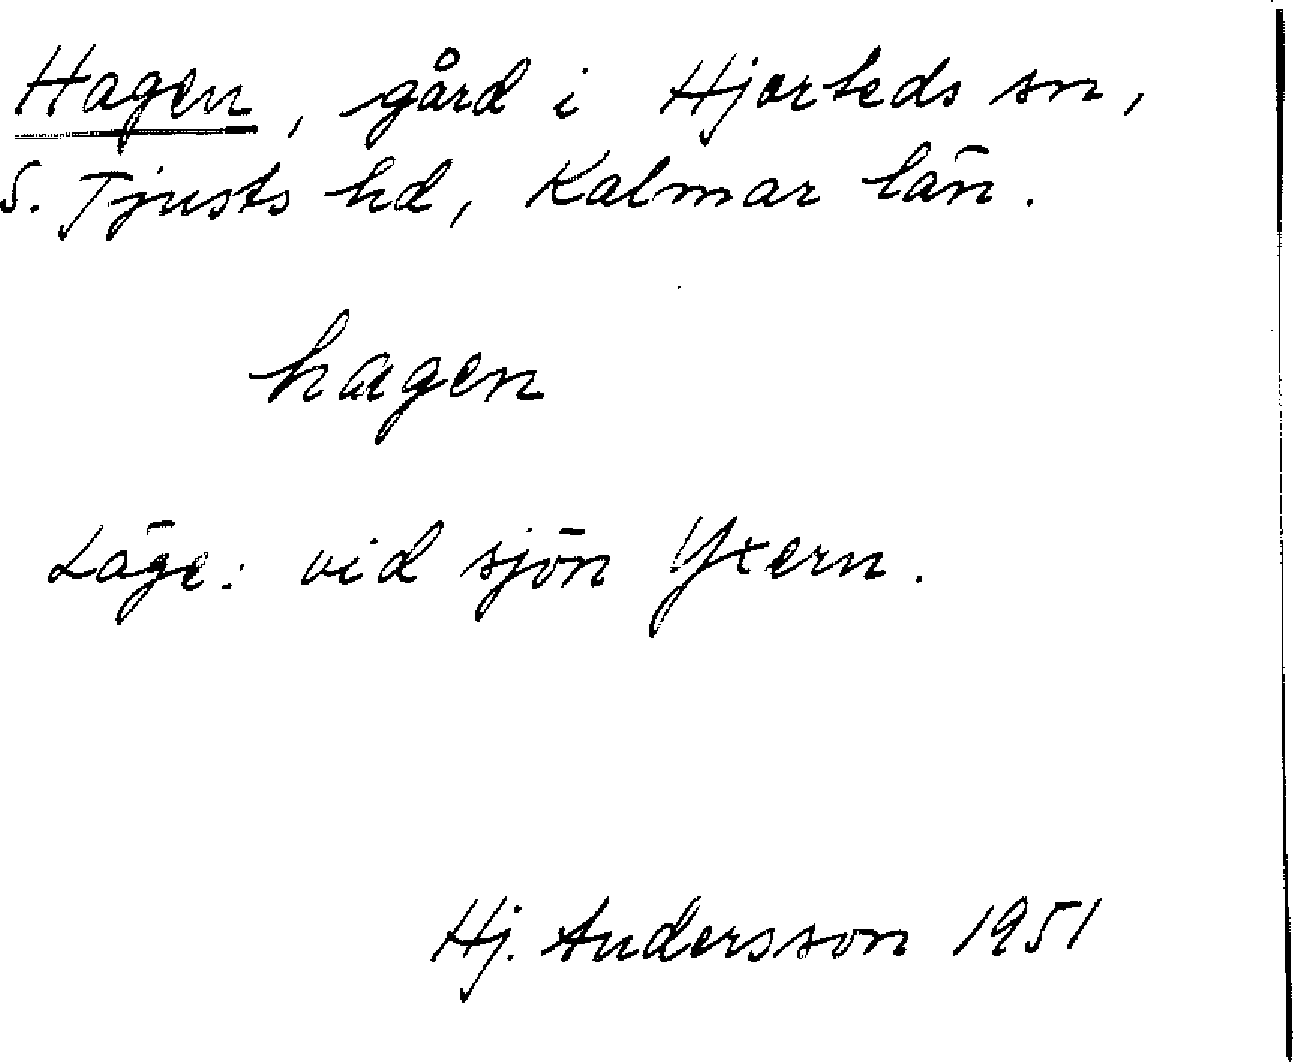 Hagen, gård i Hjorteds sn,
S. Tjusts hd, Kalmar län.
hagen
Läge: vid sjön Yxern.
Hj. Andersson 1951